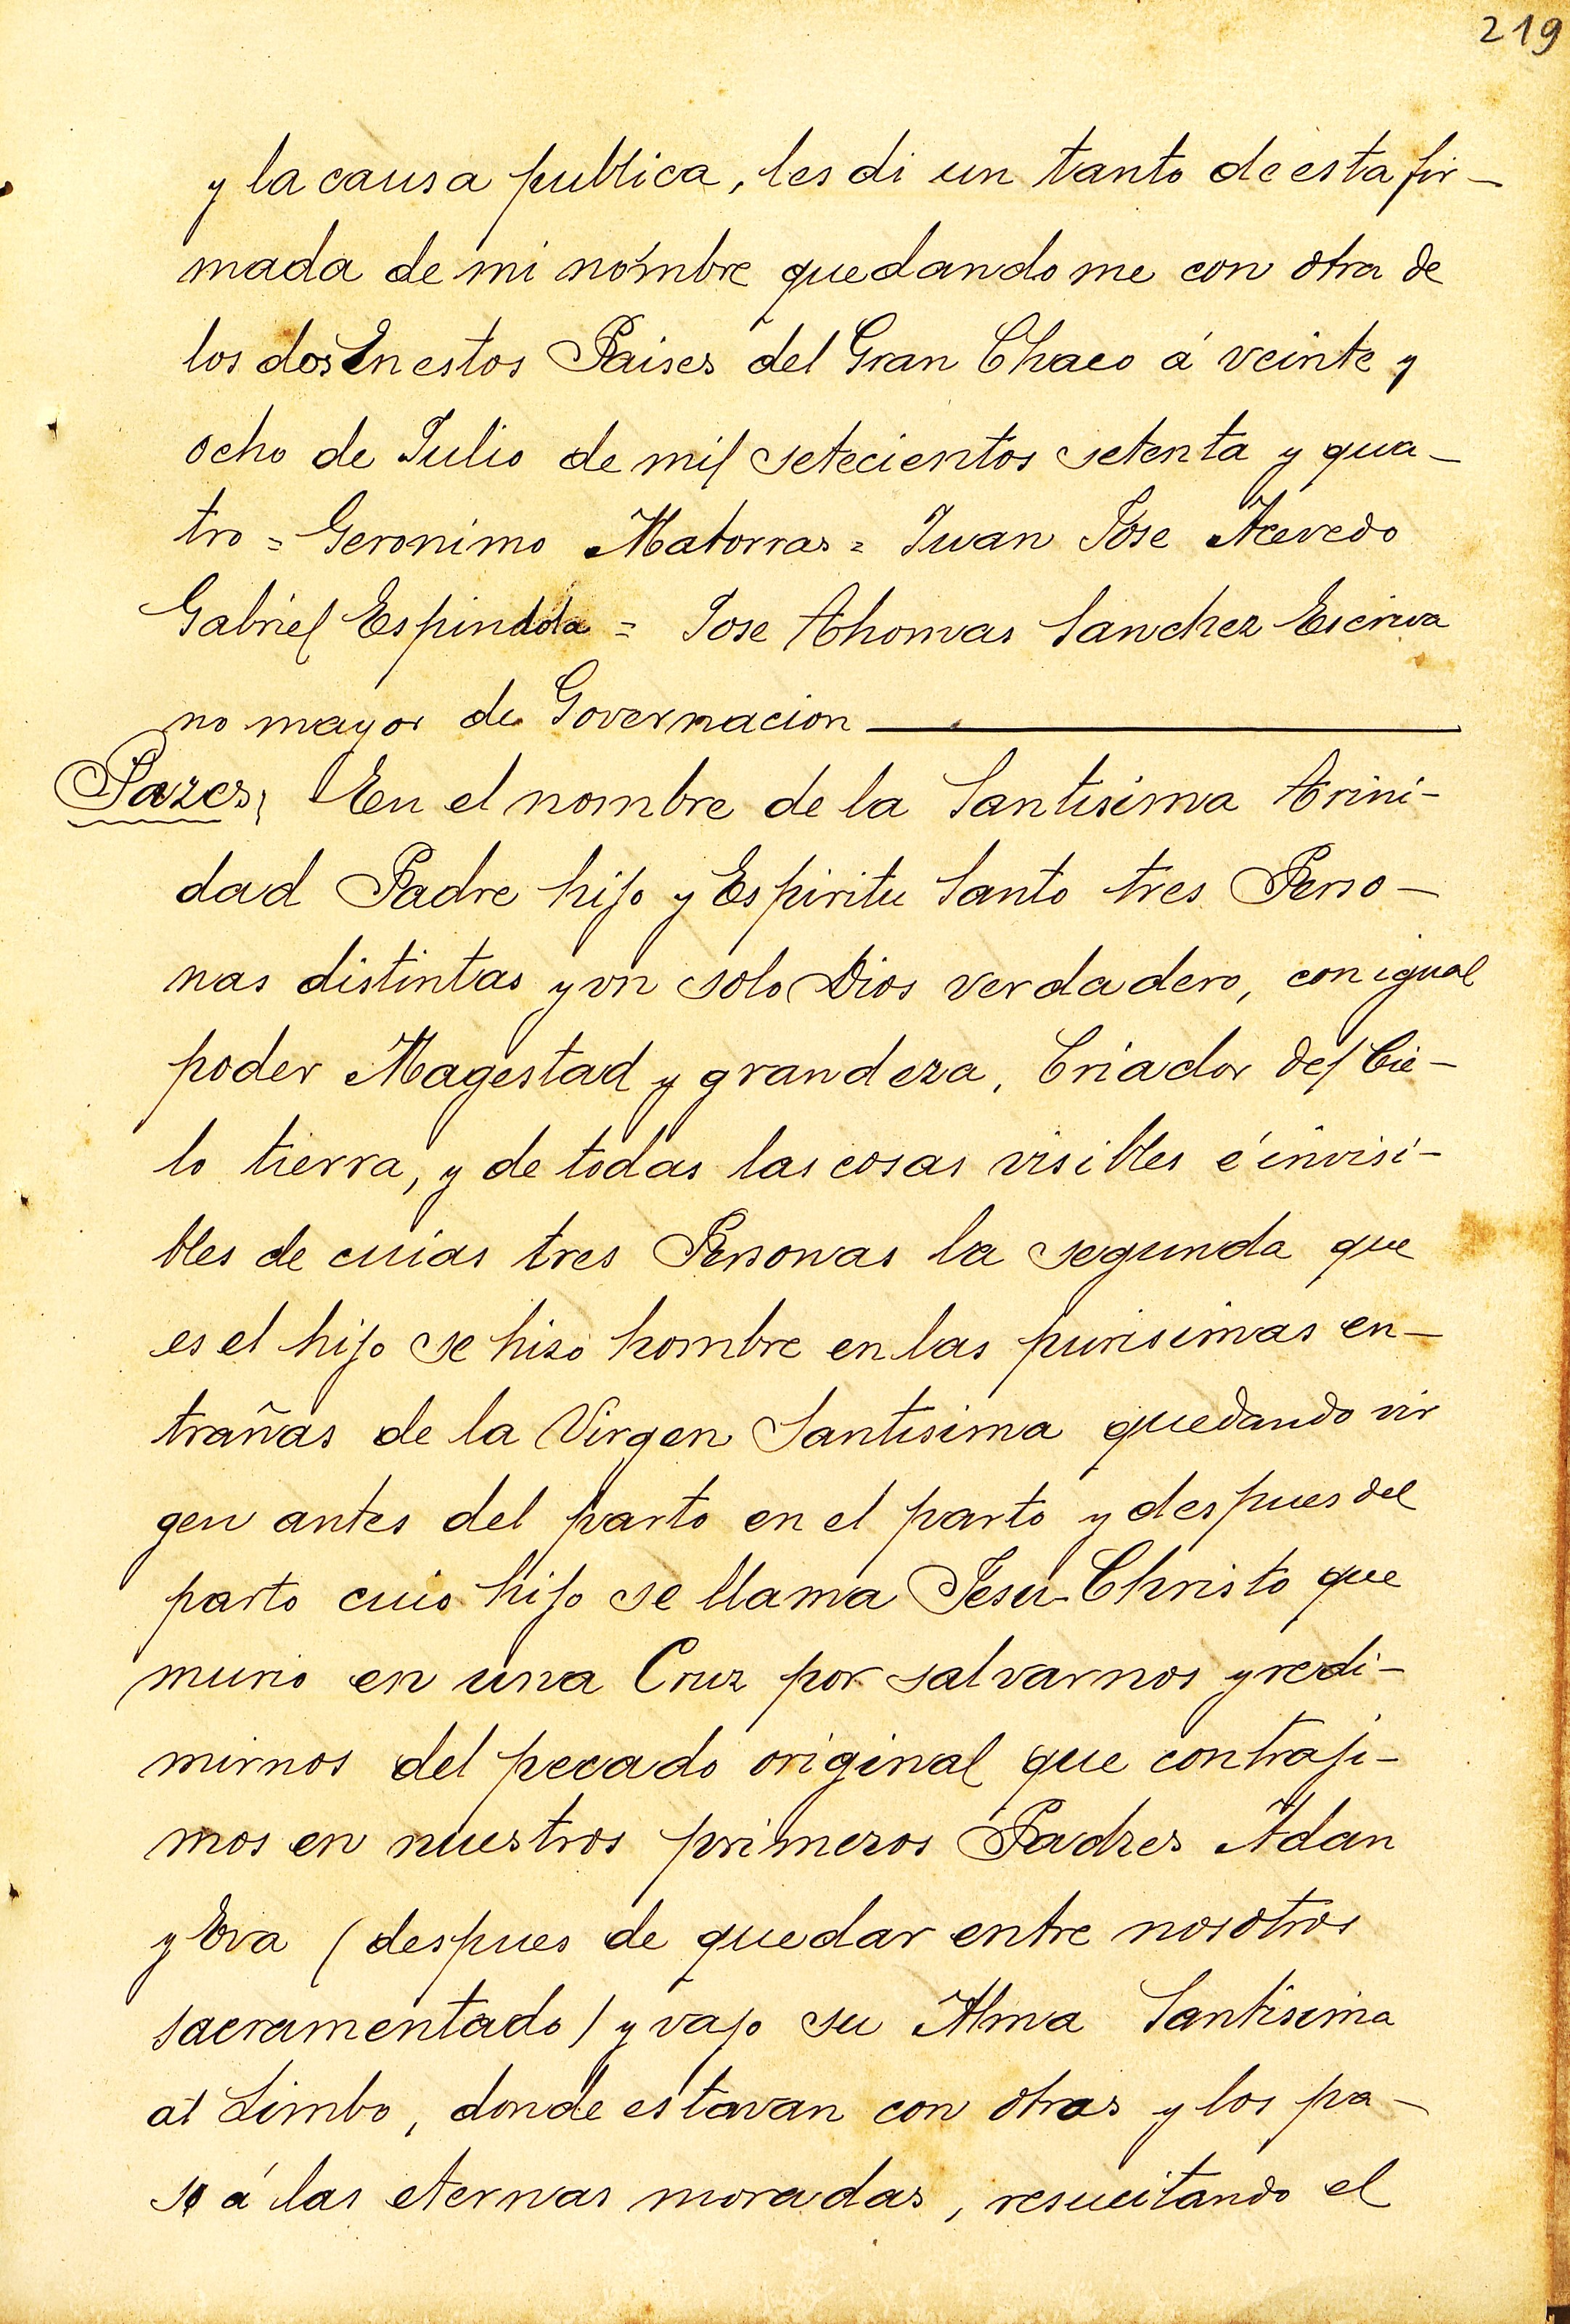 219
y la causa publica, les di un tanto de esta fir-
mada de mi nombre quedandome con otra de
los dos En estos Paises del Gran Chaco á veinte y
ocho de Julio de mil setecientos setenta y qua-
tro = Geronimo Matorras = Juan Jose Acevedo
Gabriel Espindola = Jose Thomas Sanchez Escriva
no mayor de Governacion
Pazes, En el nombre de la Santisima Trini-
dad Padre hijo y Espiritu Santo tres Perso-
nas distintas y vn solo Dios verdadero, con igual
poder Magestad y grandeza, Criador del Cie-
lo tierra, y de todas las cosas visibles é invisi-
bles de cuias tres Personas la segunda que
es el hijo se hizo hombre en las purisimas en-
trañas de la Virgen Santisima quedando vir
gen antes del parto en el parto y despues del
parto cuio hijo se llama Jesu-Christo que
murio en una Cruz por salvarnos y redi-
mirnos del pecado original que contraji-
mos en nuestros primeros Padres Adan
y Eva (despues de quedar entre nosotros
sacramentado) y vajo su Alma Santisima
al Limbo, donde estavan con otras y los pa-
so á las eternas moradas, resucitando el